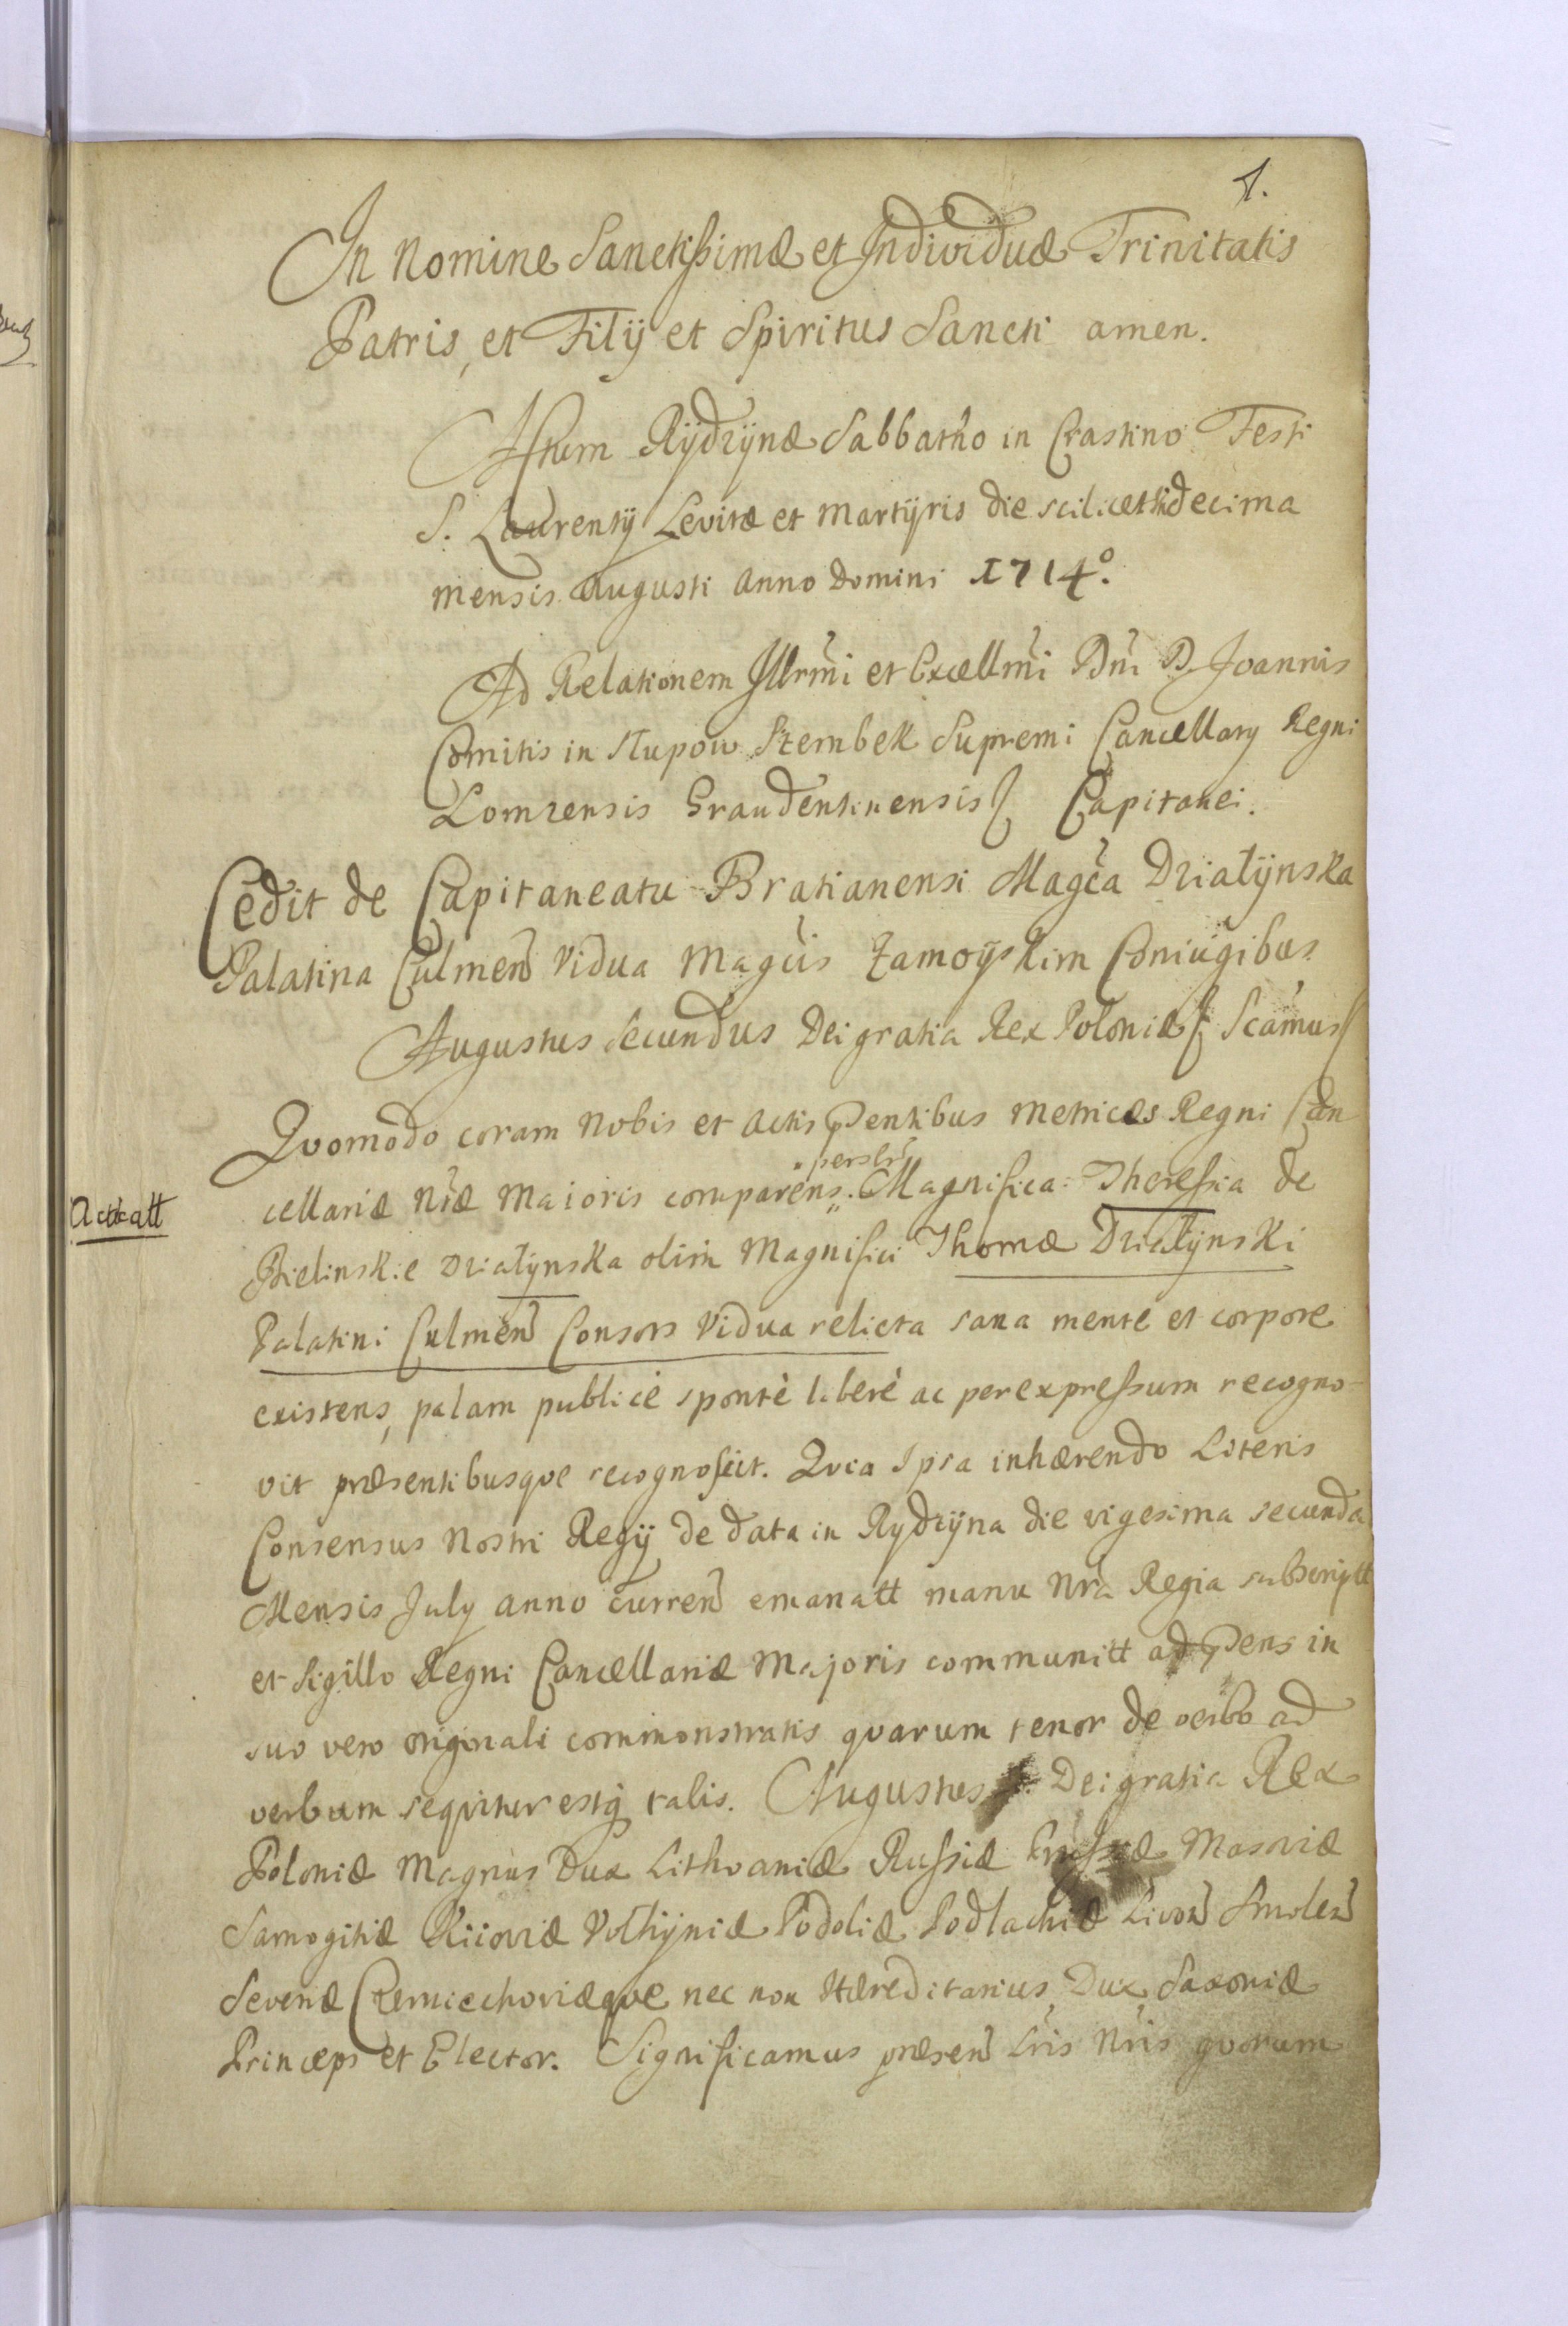 1.
In Nomine Sanctissimæ et Individuæ Trinitatis
Patris, et Filij et Spiritus Sancti amen.
Actum Rydzÿnæ Sabbatho in Crastino Festi
S. Laurentij Levitæ et Martÿris die scilicet Undecima
mensis Augusti Anno Domini 1714º.
Ad Relationem Illrmi et Excellmi Dni D. Joannis
Comitis in Słupow Szembek Supremi Cancellarÿ Regni
Lomzensis Graudentinensis Capitanei.
Cedit de Capitaneatu Bratianensi Magca Działÿnska
Palatina Culmen Vidua Magcis Zamoÿskim Coniugibus
Augustus Secundus Dei gratia Rex Poloniæ Scamus
Qvomodo coram Nobis et Actis pntibus Metrices Regni Can
cellariæ Nræ Maioris comparens persler Magnifica Theressia de
Actticatt
Bielinskie Działÿnska olim Magnifici Thomæ Działynski
Palatini Culmen Consors Vidua relicta sana mente et corpore
existens, palam publicè spontè liberè ac per expressum recogno-
vit præsentibusqve recognoscit. Qvia Ipsa inhærendo Literis
Consensus Nostri Regij de data in Rydzÿna die vigesima secunda
Mensis July anno curren emanatt manu Nra Regia subscriptt
et Sigillo Regni Cancellariæ Majoris communitt ad pns in
suo vero originali commonstratis qvarum tenor de verbo ad
verbum seqvitur estq talis. Augustus Dei gratia Rex
Poloniæ Magnus Dux Lithvaniæ Russiæ Prussiæ Masoviæ
Samogitiæ Kiioviæ Volhÿniæ Podoliæ Podlachiæ Livon Smolen
Severiæ Czerniechoviæqve nec non Hæreditarius Dux Saxoniæ
Princeps et Elector. Significamus præsen Lris Nris qvorum